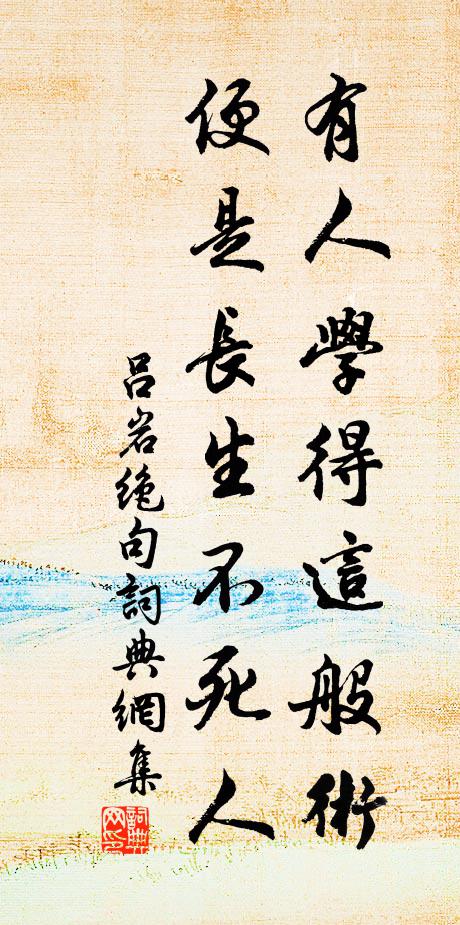 有人學得這般術
便是長生不死人
呂岩绝句詞典網集
詞典
网印